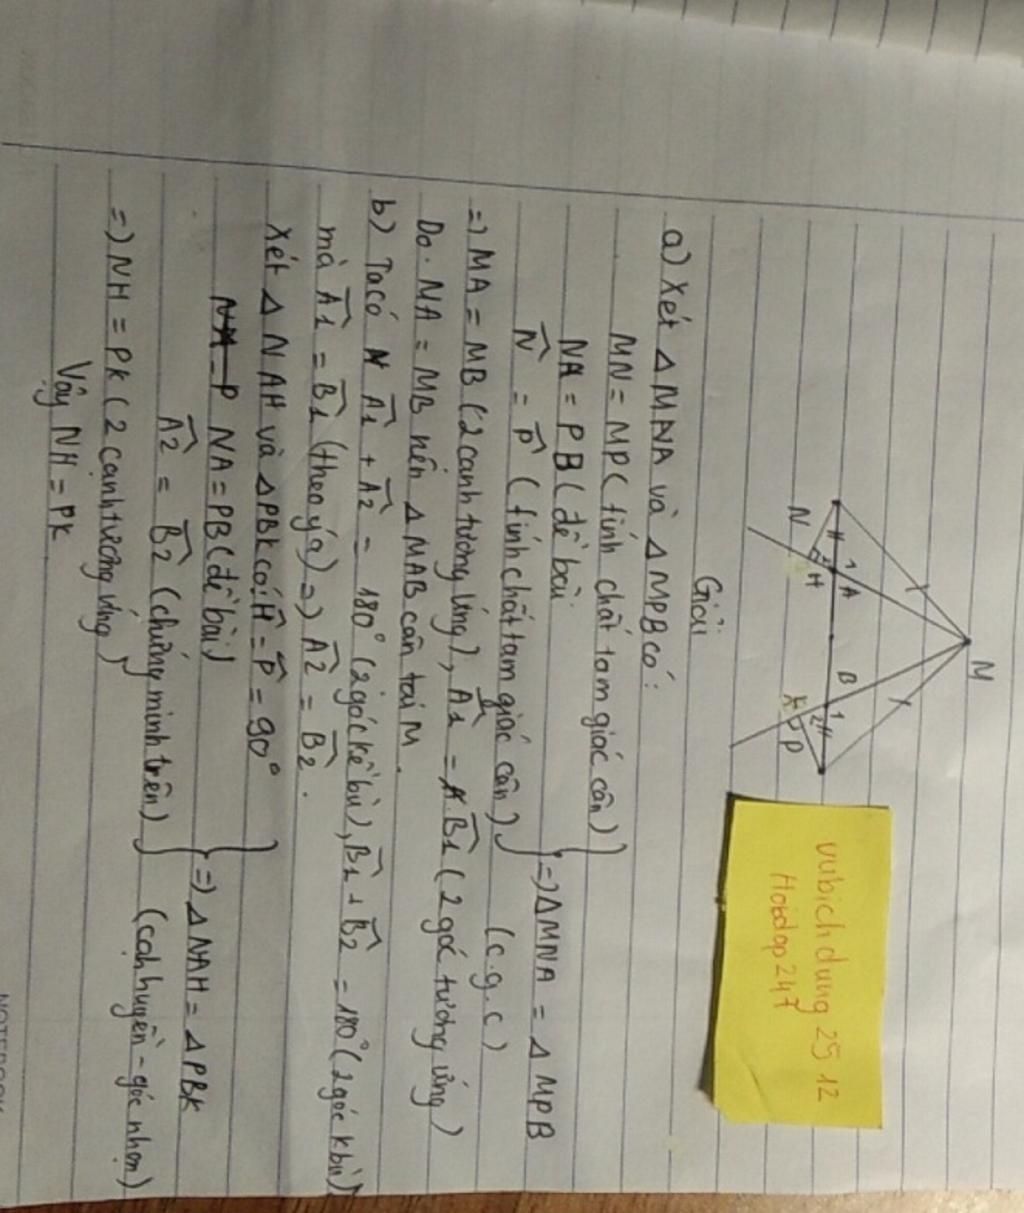 M
N
H
A
B
K
P
1
2
1
2
vubichdung 25 12
Hoidap247
Giải
a) Xét Δ MNA và Δ MPB có:
MN = MP (tính chất tam giác cân)
NA = PB (đề bài)
N̂ = P̂ (tính chất tam giác cân)
=) ΔMNA = Δ MPB
(c.g.c)
=) MA = MB (2 cạnh tương ứng), Â1 = B̂1 (2 góc tương ứng)
Do. MA = MB nên Δ MAB cân tại M.
b) Ta có Â1 + Â2 = 180° (2 góc kề bù), B̂1 + B̂2 = 180° (2 góc k bù)
mà Â1 = B̂1 (theo ý a) =) Â2 = B̂2.
Xét Δ NAH và Δ PBK có: Ĥ = P̂ = 90°
NA = P NA = PB (đề bài)
Â2 = B̂2 (chứng minh trên)
=) Δ NAH = Δ PBK
(cạh huyền - góc nhọn)
=) NH = PK (2 cạnh tương ứng)
Vậy NH = PK
NOTEBOOK